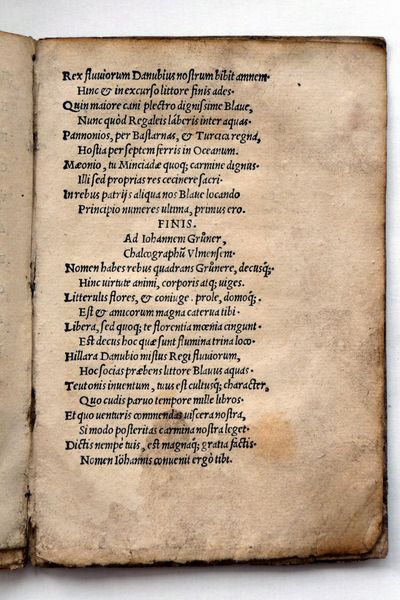 Rex fluuiorum Danubius nostrum bibit amnem·
Hinc & in excurso littore finis ades·
Quin maiore cani plectro dignissime Blaue,
Nunc quòd Regaleis láberis inter aquas·
Pannonios, per Bastarnas, & Turcica regna,
Hostia per septem ferris in Oceanum.
Mæonio, tu Minciadæ quoq; carmine dignus·
Illi sed proprias res cecinere sacri·
In rebus patrijs aliqua nos Blaue locando
Principio numeres ultima, primus ero.
FINIS.
Ad Iohannem Grůner,
Chalcographũ Vlmensem·
Nomen habes rebus quadrans Grůnere, decusq;·
Hinc uirtute animi, corporis atq; uiges.
Litterulis flores, & coniuge · prole, domoq;·
Est & amicorum magna caterua tibi·
Libera, sed quoq; te florentia mœnia cingunt·
Est decus hoc quæ sunt flumina trina loco·
Hillara Danubio mistus Regi fluuiorum,
Hoc socias præbens littore Blauus aquas·
Teutonis inuentum, tuus est cultusq; character,
Quo cudis paruo tempore mille libros·
Et quo uenturis commendas uiscera nostra,
Si modo posteritas carmina nostra leget·
Dictis nempè tuis, est magnaq; gratia factis·
Nomen Iöhannis conuenit ergò tibi.